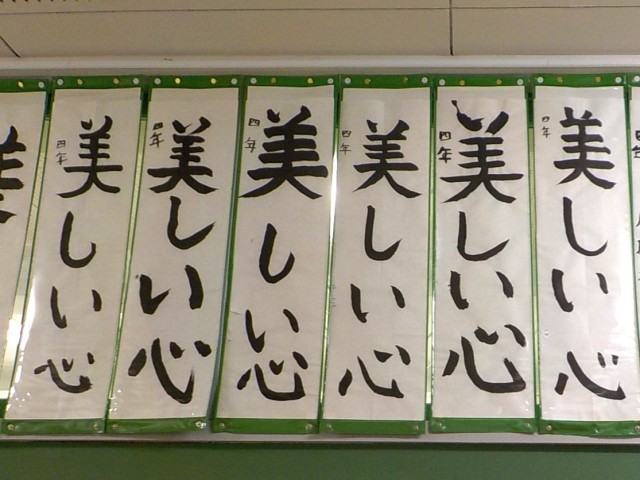 四年
美しい心
四年
美しい心
四年
美しい心
四年
美しい心
四年
美しい心
四年
美しい心